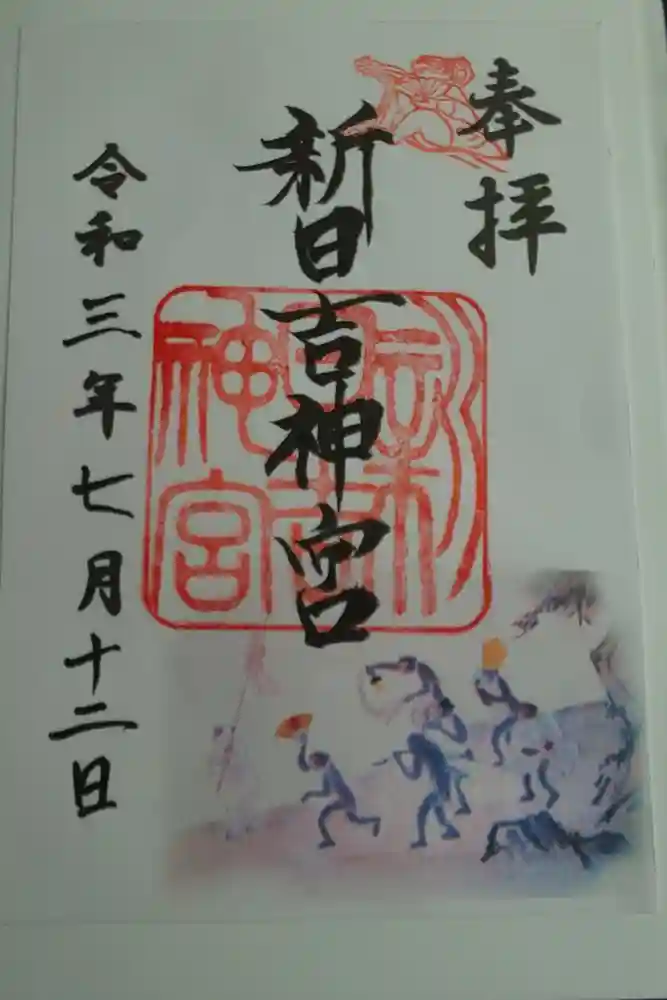 奉拝
新日吉神宮
令和三年七月十二日
新日吉神宮